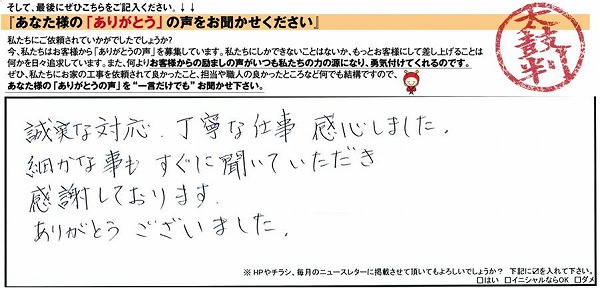 そして、最後にぜひこちらをご記入ください。↓↓
『あなた様の「ありがとう」の声をお聞かせください』
私たちにご依頼されていかがでしたでしょうか?
今、私たちはお客様から「ありがとうの声」を募集しています。私たちにしかできないことはないか、もっとお客様にして差し上げることは
何かを日々追求しています。また、何よりお客様からの励ましの声がいつも私たちの力の源になり、勇気付けてくれるのです。
ぜひ、私たちにお家の工事を依頼されて良かったこと、担当や職人の良かったところなど何でも結構ですので、
あなた様の「ありがとうの声」を“一言だけでも”お聞かせ下さい。
太鼓判
誠実な対応、丁寧な仕事 感心しました。
細かな事も すぐに聞いていただき
感謝しております。
ありがとう ございました。
※HPやチラシ、毎月のニュースレターに掲載させて頂いてもよろしいでしょうか? 下記に☑を入れて下さい。
□はい □イニシャルならOK □ダメ